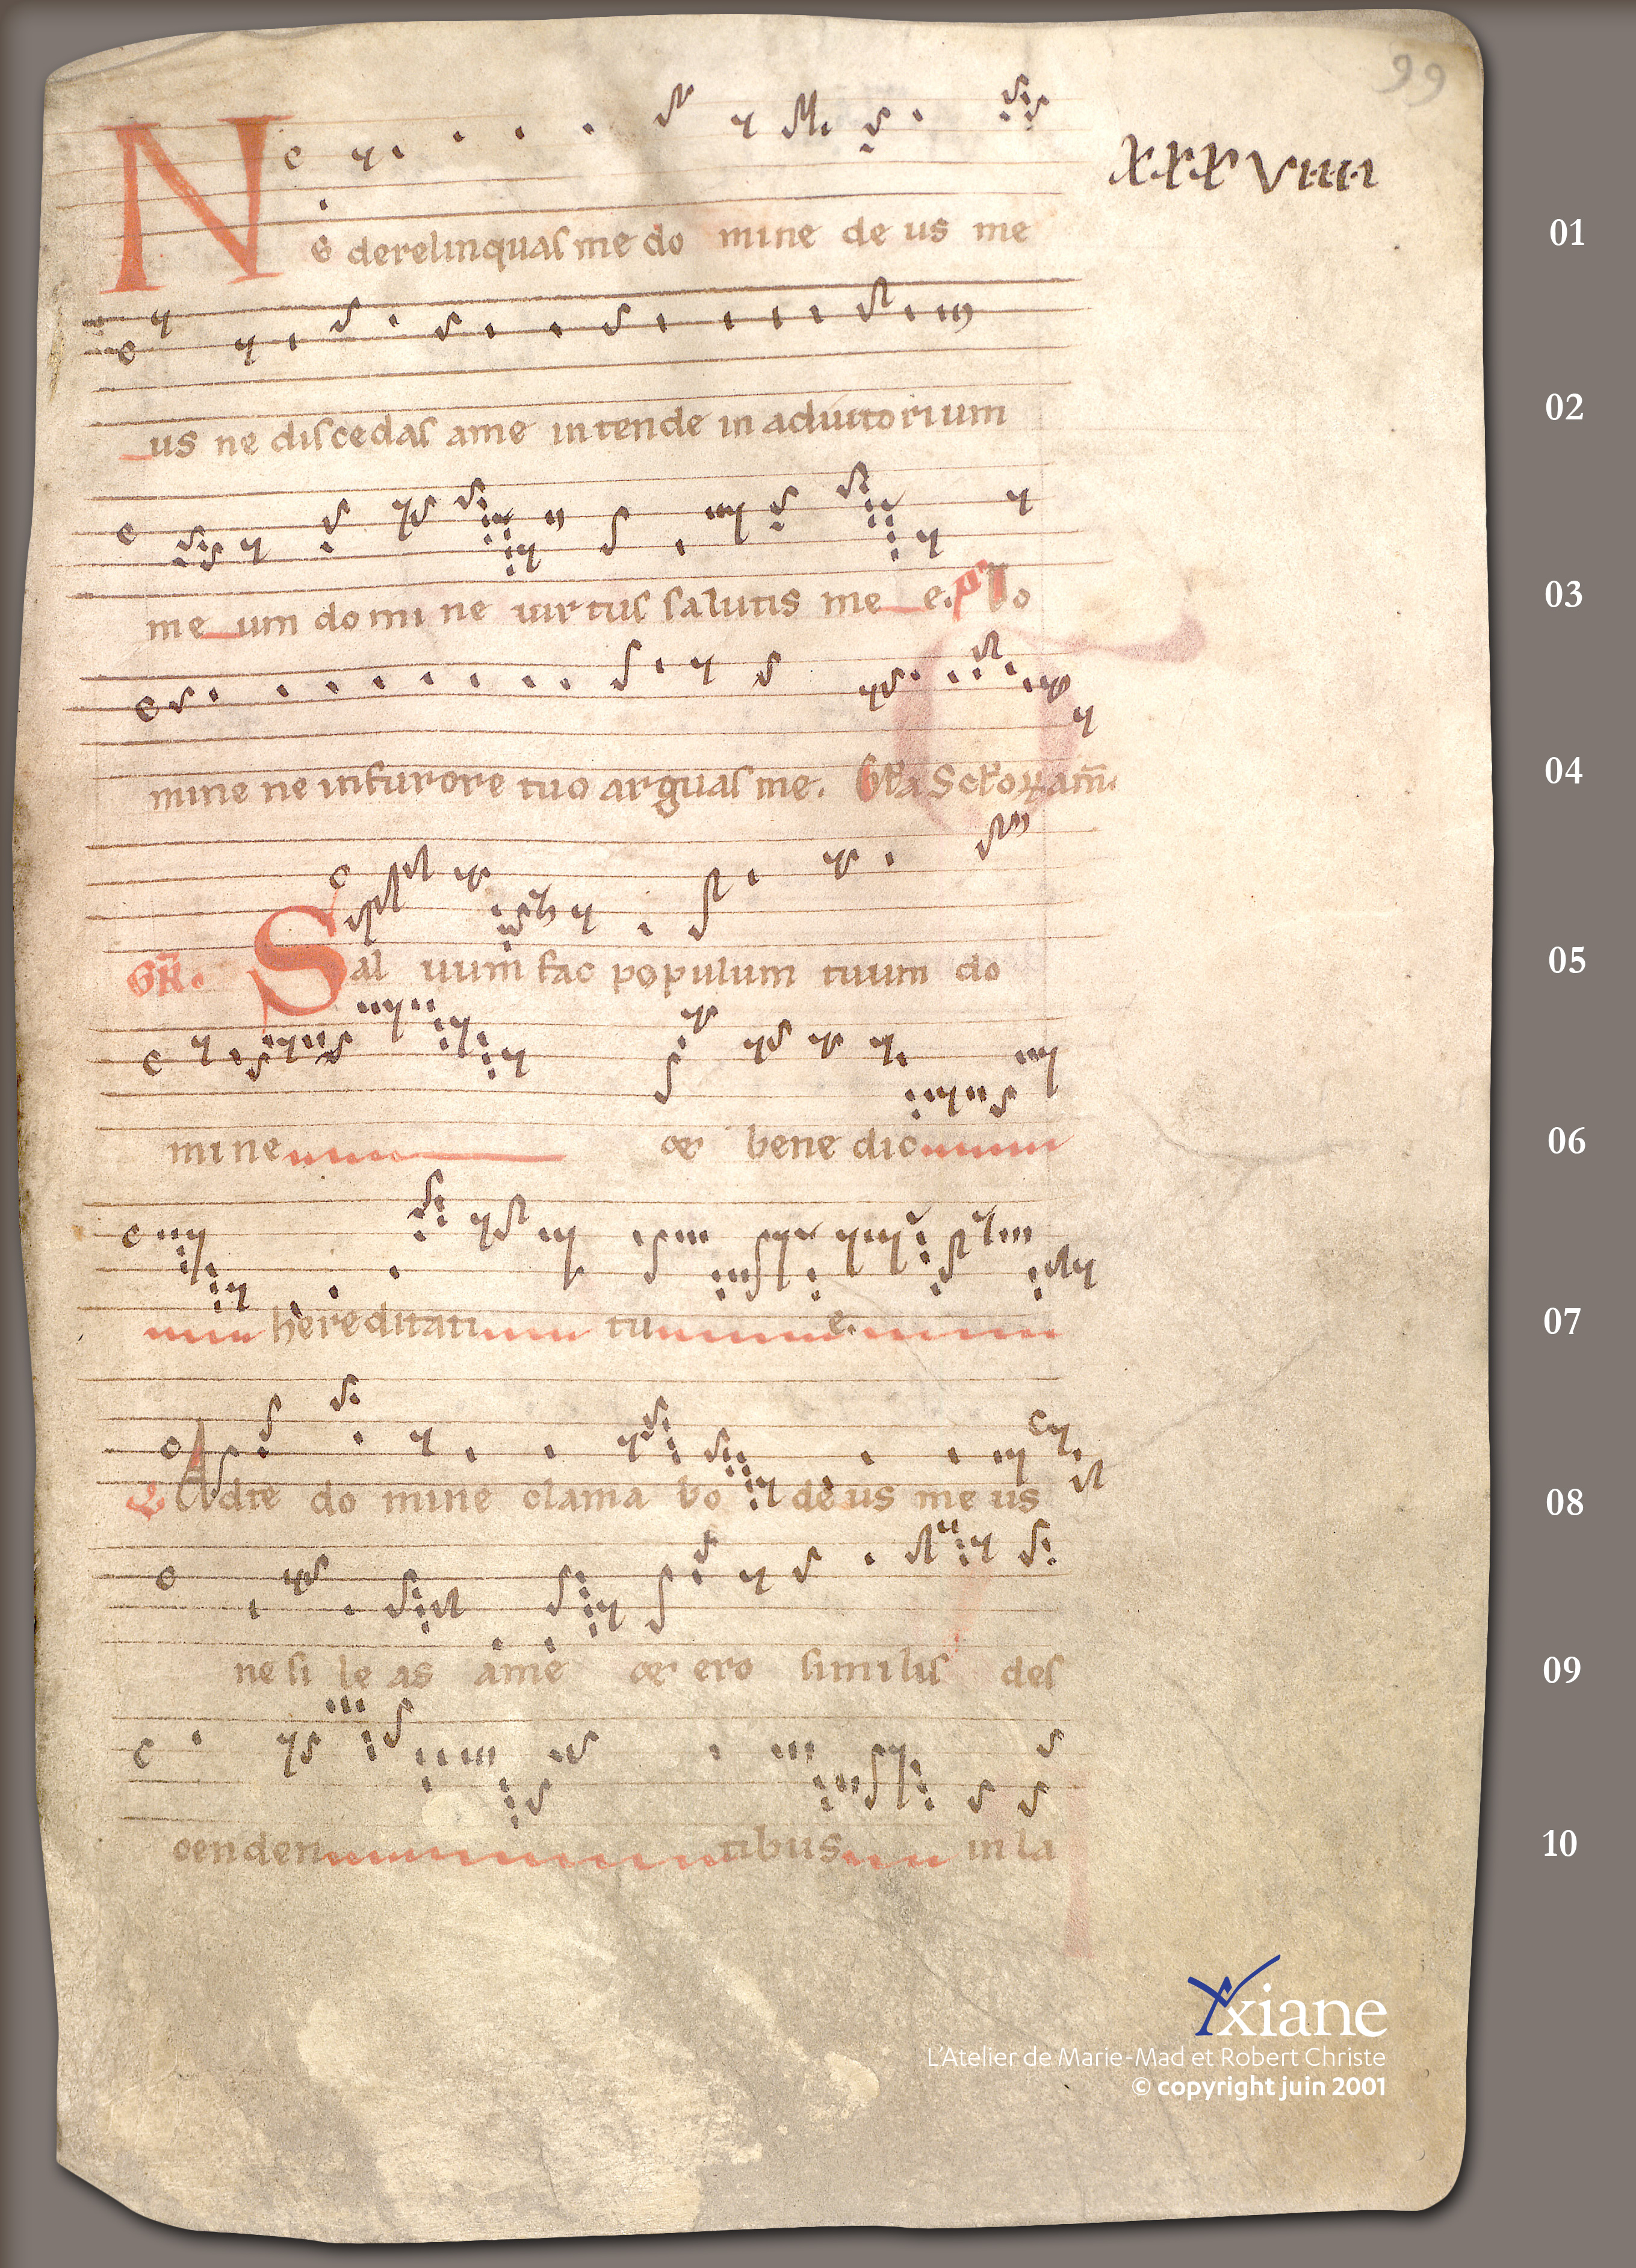 99
XXXVIIII
01
Ne derelinquas me do mine de us me
02
us ne discedas ame intende in adiutorium
03
me um domi ne uirtus salutis me e. Ps Do
04
mine ne infurore tuo arguas me. Gɫa Scɫoꝝ am̄.
05
GR̄. Sal uum fac populum tuum do
06
mine & bene dic
07
hereditati tu e.
08
Adte do mine clama bo deus me us
09
ne si le as ame & ero similis des
10
cenden tibus in la
Axiane
L'Atelier de Marie-Mad et Robert Christe
© copyright juin 2001